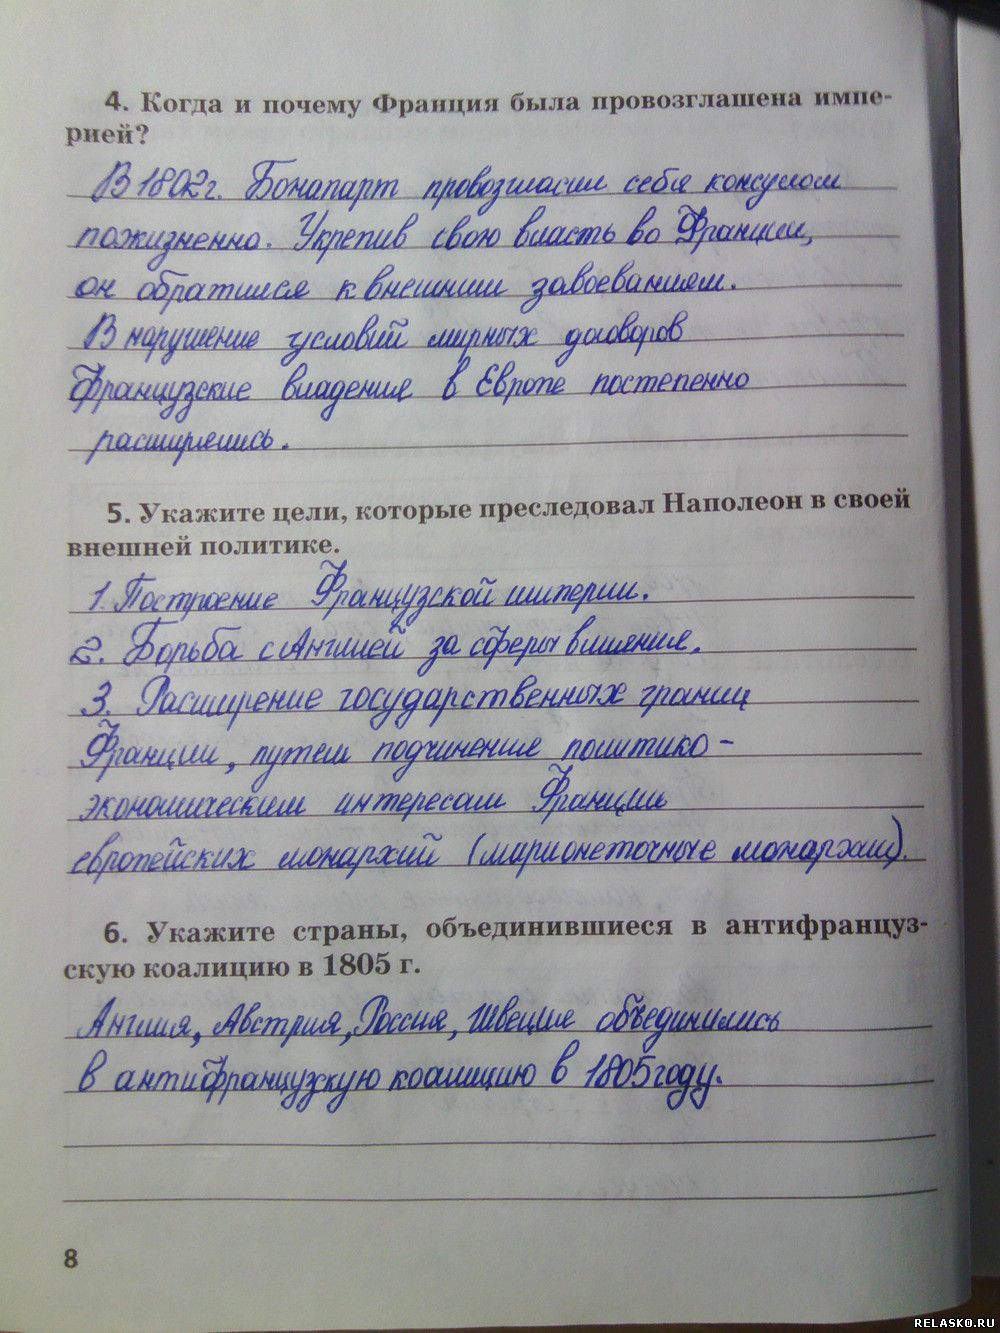 4. Когда и почему Франция была провозглашена импе-
рией?
В 1802 г. Бонапарт провозгласил себя консулом
пожизненно. Укрепив свою власть во Франции,
он обратился к внешним завоеваниям.
В нарушение условий мирных договоров
Французские владения в Европе постепенно
расширялись.
5. Укажите цели, которые преследовал Наполеон в своей
внешней политике.
1. Построение Французской империи.
2. Борьба с Англией за сферы влияние.
3. Расширение государственных границ
Франции, путем подчинение политико-
экономическим интересам Франции
европейских монархий (марионеточные монархии).
6. Укажите страны, объединившиеся в антифранцуз-
скую коалицию в 1805 г.
Англия, Австрия, Россия, Швеция объединились
в антифранцузскую коалицию в 1805 году.
8
RELASKO.RU